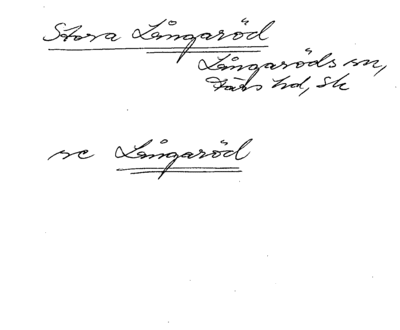 Stora Långaröd
Långaröds sn,
Färs hd, Sk
se Långaröd